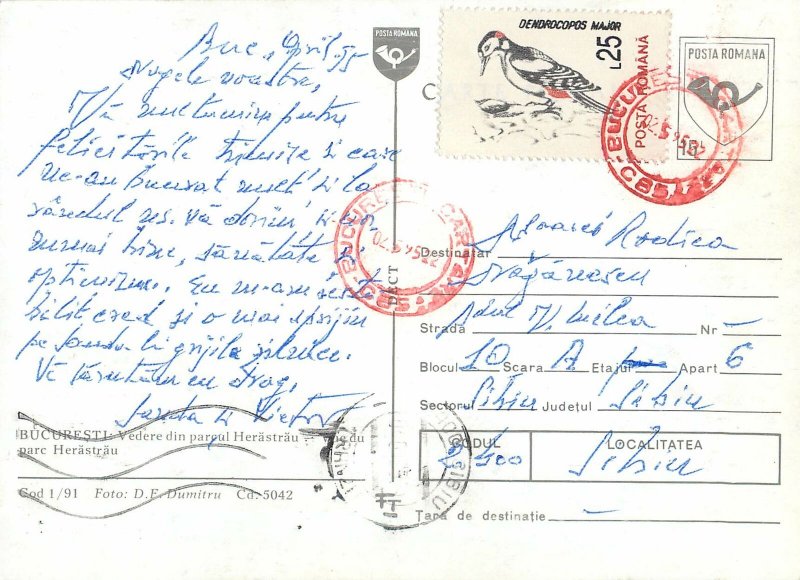 Buc, April, 95
Dragele noastre,
Vă mulțumim pentru
felicitările trimise și care
ne-au bucurat mult și la
rândul ns. vă dorim, și
numai bine, sănătate și
optimism. Eu m-am
cred și o mai sprijin
pe Sanda la grijile zilnice.
Vă sărutăm cu drag,
Sanda și Victor
BUCUREȘTI: Vedere din parcul Herăstrău
parc Herăstrău
Cod 1/91 Foto: D.F. Dumitru Cd. 5042
POSTA ROMANA
DENDROCOPOS MAJOR
L25
POȘTA ROMÂNĂ
POSTA ROMANA
BUCUREȘTI
C85
BUCUREȘTI CARTARE
02.5.95.22
C85
Destinatar Rodica
Drăgănescu
Strada Milea Nr –
Blocul 10 Scara A Etajul Apart 6
Sectorul Sibiu Județul Sibiu
CODUL LOCALITATEA
2400 Sibiu
Țara de destinație –
SIBIU